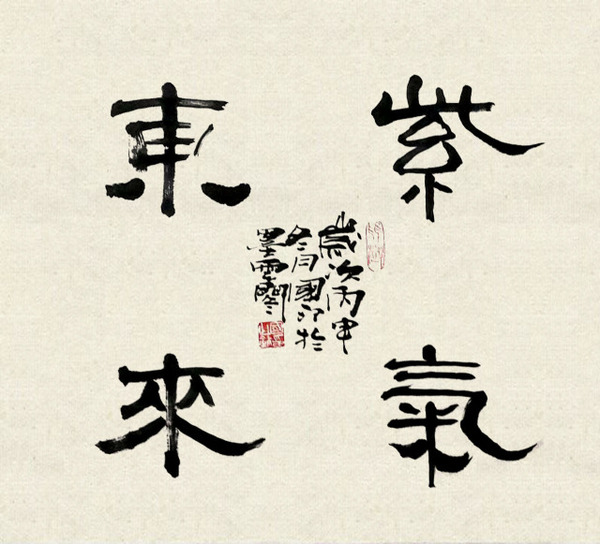 紫氣
東來
歲次丙申
冬月國印於
墨雲閣